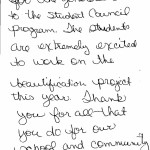 to the Student Council
program. The students
are extremely excited
to work on the
beautification project
this year. Thank
you for all that
you do for our
school and community